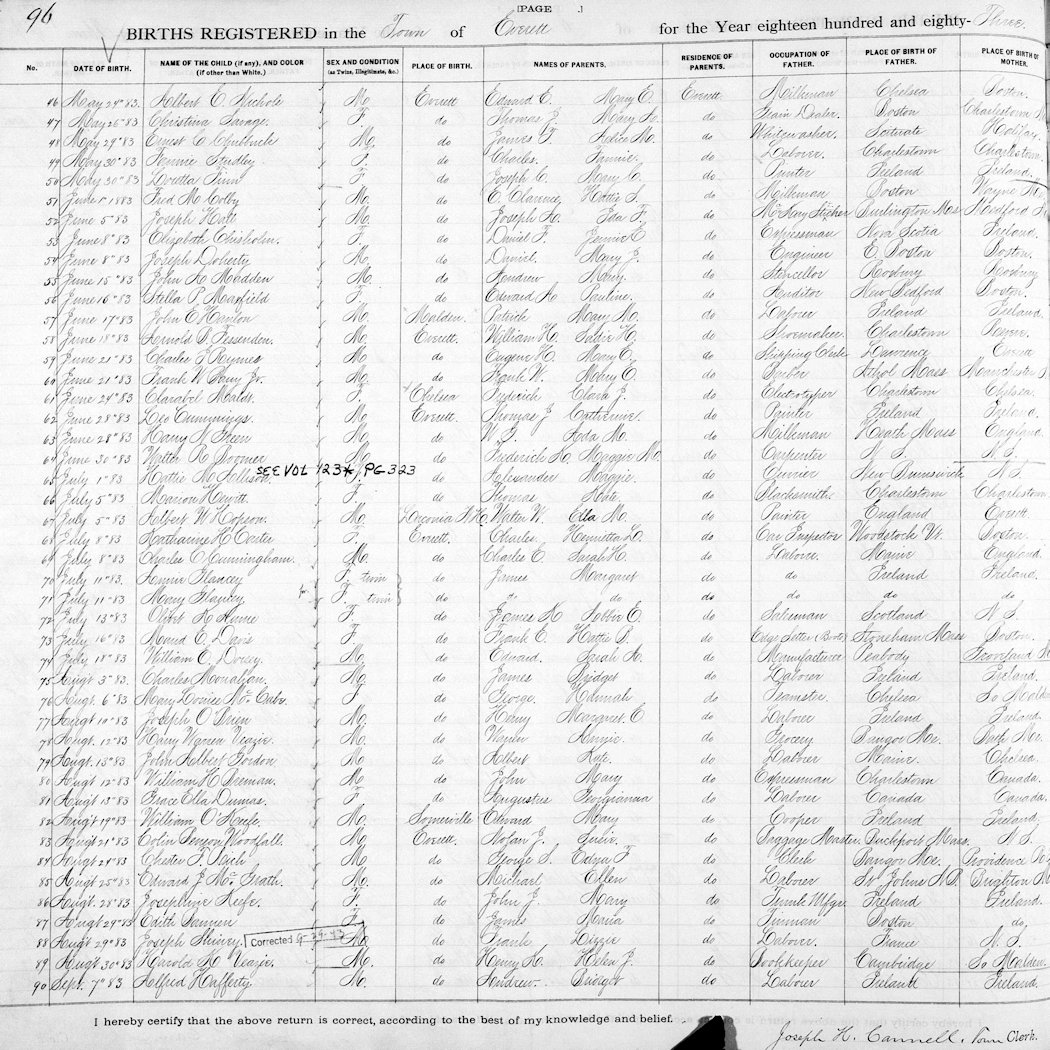 96
[PAGE .]
BIRTHS REGISTERED in the Town of Everett for the Year eighteen hundred and eighty-Three.
No. DATE OF BIRTH. NAME OF THE CHILD (if any), AND COLOR (if other than White.) SEX AND CONDITION (as Twins, Illegitimate, &c.) PLACE OF BIRTH. NAMES OF PARENTS. RESIDENCE OF PARENTS. OCCUPATION OF FATHER. PLACE OF BIRTH OF FATHER. PLACE OF BIRTH OF MOTHER.
46 May 24" 83. Albert E. Nichols M. Everett Edward E. Mary E. Everett Milkman Chelsea Boston.
47 May 26" 83 Christina Savage. F. do Thomas J. Mary do Grain Dealer. Boston Charlestown
48 May 29" 83 Ernest C. M. do James F. Alice M. do Whitewasher. Scituate
49 May 30" 83 Fannie Studley F. do Charles. Fannie. do Laborer. Charlestown Charlestown
50 May 30" 83 Loretta Finn F. do Joseph C. Mary C. do Printer Ireland Ireland.
51 June 1" 1883 Fred M. Colby M. do E. Clarence, Hattie S. do Milkman Boston Wayne
52 June 5" 83 Joseph M. do Joseph Ida F. do Burlington Mass Medford
53 June 8" 83 Elizabeth Chisholm. F. do Daniel F. Jennie E do Expressman Nova Scotia Ireland.
54 June 8" 83 Joseph Doherty M. do Daniel. Mary J. do Engineer E. Boston Boston.
55 June 15" 83 John A. Madden M. do Andrew Mary. do Roxbury Roxbury
56 June 16" 83 Stella P. F. do Edward A. Pauline. do Auditor New Bedford Boston.
57 June 17" 83 John E. Hanlon M. Malden. Patrick Mary M. do Laborer Ireland Ireland
58 June 18" 83 Arnold Fessenden. M. Everett. William H. Sadie H. do Shoemaker. Charlestown Revere.
59 June 21" 83 Charles F. Hymes M. do Eugene H. Mary E. do Shipping Clerk Lawrence
60 June 21" 83 Frank W. Jr. M. do Frank W. Mary E. do Athol Mass Manchester
61 June 24" 83 Clarabel F. Chelsea Frederick Clara J. do Electrotyper Charlestown Chelsea.
62 June 28" 83 Leo Cummings. M. Everett. Thomas J. Catherine. do Painter Ireland Ireland.
63 June 28" 83 Harry N. M. do W. Ada M. do Milkman Heath Mass England
64 June 30" 83 Walter M. do Frederick Maggie M. do Carpenter N. S. N. S.
65 July 1" 83 Hattie M. Allison. F. do Alexander Maggie. do New Brunswick N. S.
SEE VOL 123*, PG 323
66 July 5" 83 Marion Hewitt. F. do Thomas Kate. do Blacksmith. Charlestown Charlestown.
67 July 5" 83 Albert W. Hopson. M. Laconia N. H. Walter W. Ella M. do Painter England Everett
68 July 8" 83 Katharine H. Carter F. Everett. Charles. Henrietta L. do Car Inspector Woodstock Vt. Boston.
69 July 8" 83 Charles O. Cunningham. M. do Charles E. Sarah H. do Laborer. Maine England.
70 July 11" 83 Annie F. twin do James Margaret do do Ireland Ireland.
71 July 11" 83 Mary F. twin do do do do do do do
72 July 13" 83 Olive Hume F. do James Abbie E. do Salesman Scotland N. S.
73 July 16" 83 Maud E. Davis F. do Frank E. Hattie do Stoneham Mass Boston.
74 July 18" 83 William C. Dorsey. M. do Edward. Sarah A. do Manufacturer Peabody Groveland
75 Augt 3" 83 Charles Monahan. M. do James Bridget do Laborer Ireland Ireland.
76 Augt. 6" 83 Mary Louise McCabe. F do George. Hannah do Teamster. Chelsea So Malden
77 Augt 10" 83 Joseph O'Brien M. do Henry Margaret. E do Laborer Ireland Ireland.
78 Augt. 12" 83 Harry Warren Veazie. M. do Warren Annie. do Grocery Bangor Me. Bath Me.
79 Augt. 13" 83 John Albert Gordon M. do Albert Kate. do Laborer Maine. Chelsea.
80 Augt 12" 83 William H. M do John Mary do Expressman Charlestown Canada.
81 Augt 13" 83 Grace Ella Dumas. F. do Augustus Georgianna do Laborer Canada Canada.
82 Augt 19" 83 William O'Keefe. M. Somerville Edward Mary do Cooper Ireland Ireland.
83 Augt 21" 83 Colin Woodfall. M. Everett. Nolan J. do Baggage Master. Buckport Mass. N. S.
84 Augt 24" 83 Chester F. Rich M. do George S. Edna F do Clerk Bangor Me. Providence
85 Augt 25" 83 Edward J. McGrath. M. do Michael Ellen do Laborer St Johns N.B. Brighton
86 Augt. 28" 83 Josephine Keefe. F. do John J. Mary do Trunk Mfgr. Ireland Ireland.
87 Augt 29" 83 Edith F. do James Maria do Tinman Boston do.
88 Augt 29" 83 Joseph M. do Frank Lizzie do Laborer. France N. S.
Corrected 9-29-43
89 Augt 30" 83 Harold Veazie. M. do Henry A. Helen J. do Bookkeeper Cambridge So Malden.
90 Sept. 7" 83 Alfred Hafferty M. do Andrew Bridget do Laborer Ireland Ireland.
I hereby certify that the above return is correct, according to the best of my knowledge and belief.
Joseph H. Cannell, Town Clerk.